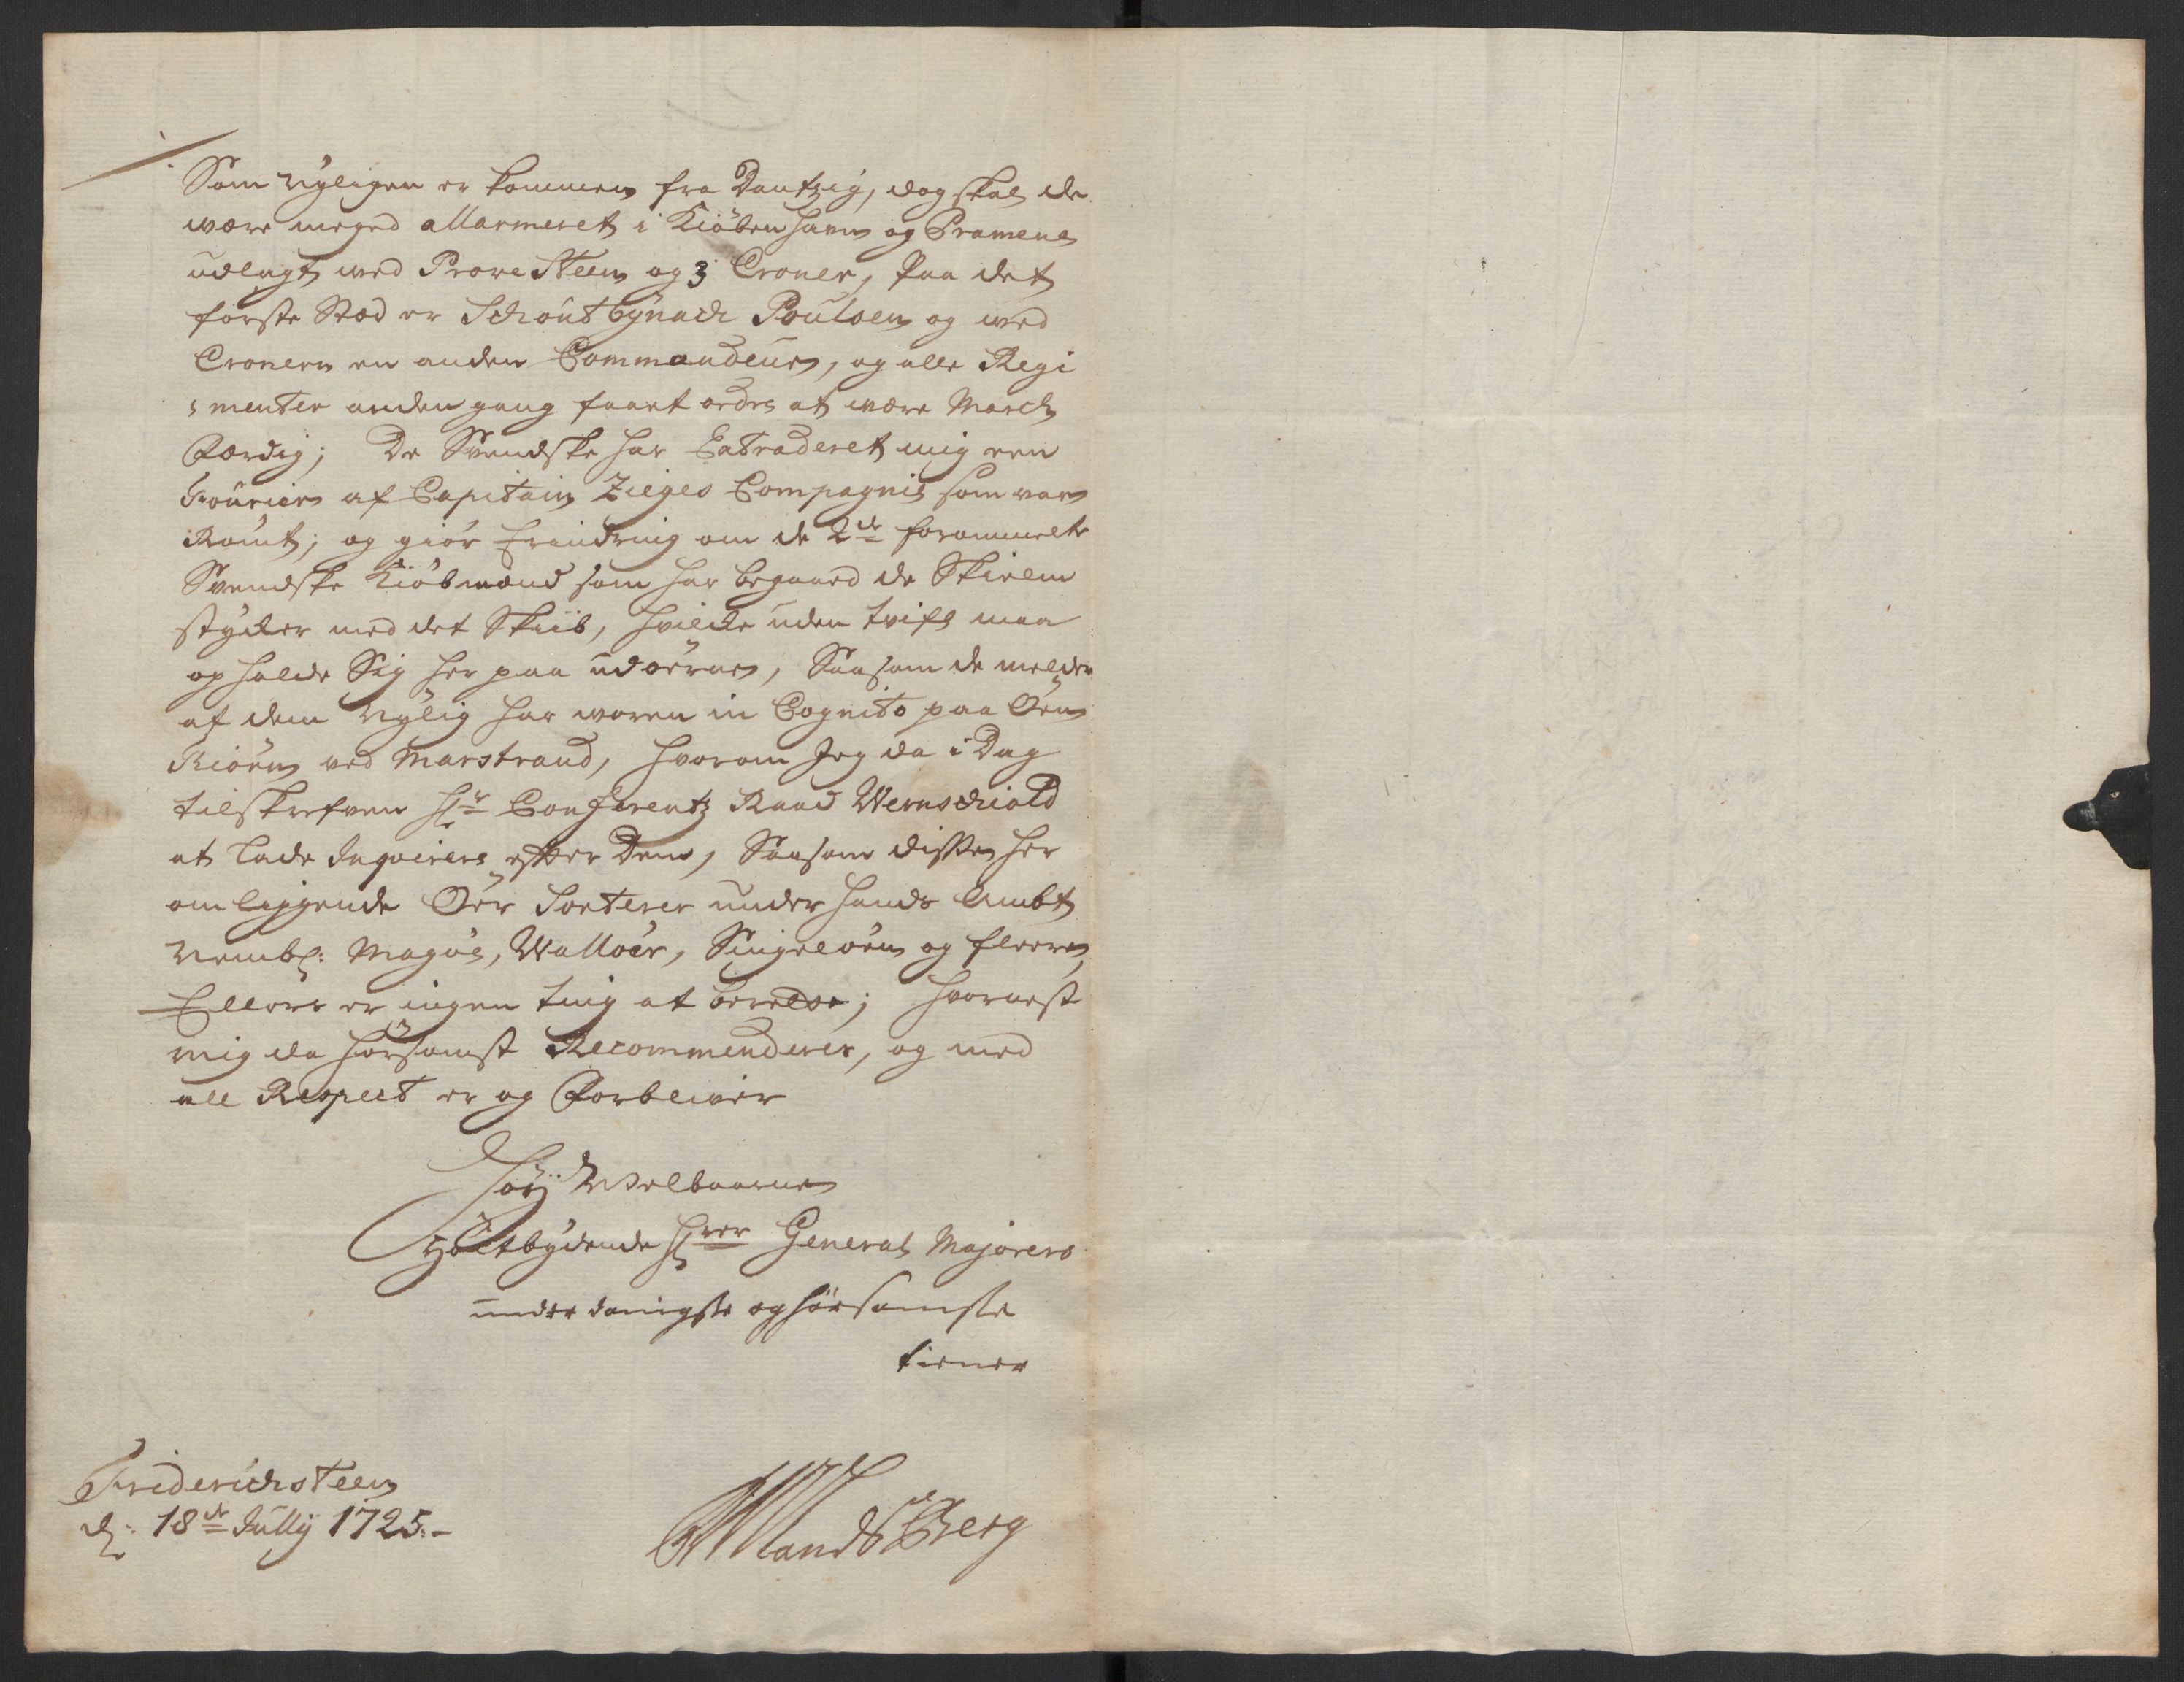 Som nyligen er kommen fra Dantzig, dog skal de
være meged allarmeret i Kiöbenhavn og Pramene
udlagt ved Prove Steen og 3 Croner, paa det
første Stæd er Schoutbÿnach Poulsen og ved
Cronern en anden Commandeur, og alle Regi
menter anden gang faaet ordre at være March
Færdig; De Svendske har Extraderet mig een
Fourier af Capitain Zieges Compagnie som var
Römt; og giör Erindring om de 2de forommelte
Svendske Kiöbmænd som har begaaed de Skielm
stÿcker med det Skiib, hvilcke uden tvifl maa
opholde Sig her paa udöerne, Saasom de melder
af dem nÿlig har været in Cognito paa Öen
Kiöen ved Marstrand, hvorom Jeg da i Dag
tilskrefven Hr Conferentz Raad Wernschiold
at lade Inqvirere efter Dem, Saasom disse her
omliggende Öer Sorterer under hands Ambt
Nembl: Magöe, Walloer, Singelöen og fleere,
Ellers er ingen ting at berette; hvornest
mig da hörsomst Recommenderer, og med
all Respect er og Forbliver
Höÿ Welbaarne
Höitbÿdende Hrr General Majorers
underdanigste og hörsomste
tiener
Friderichsteen
d: 18de Jullÿ 1725.-
Landsberg